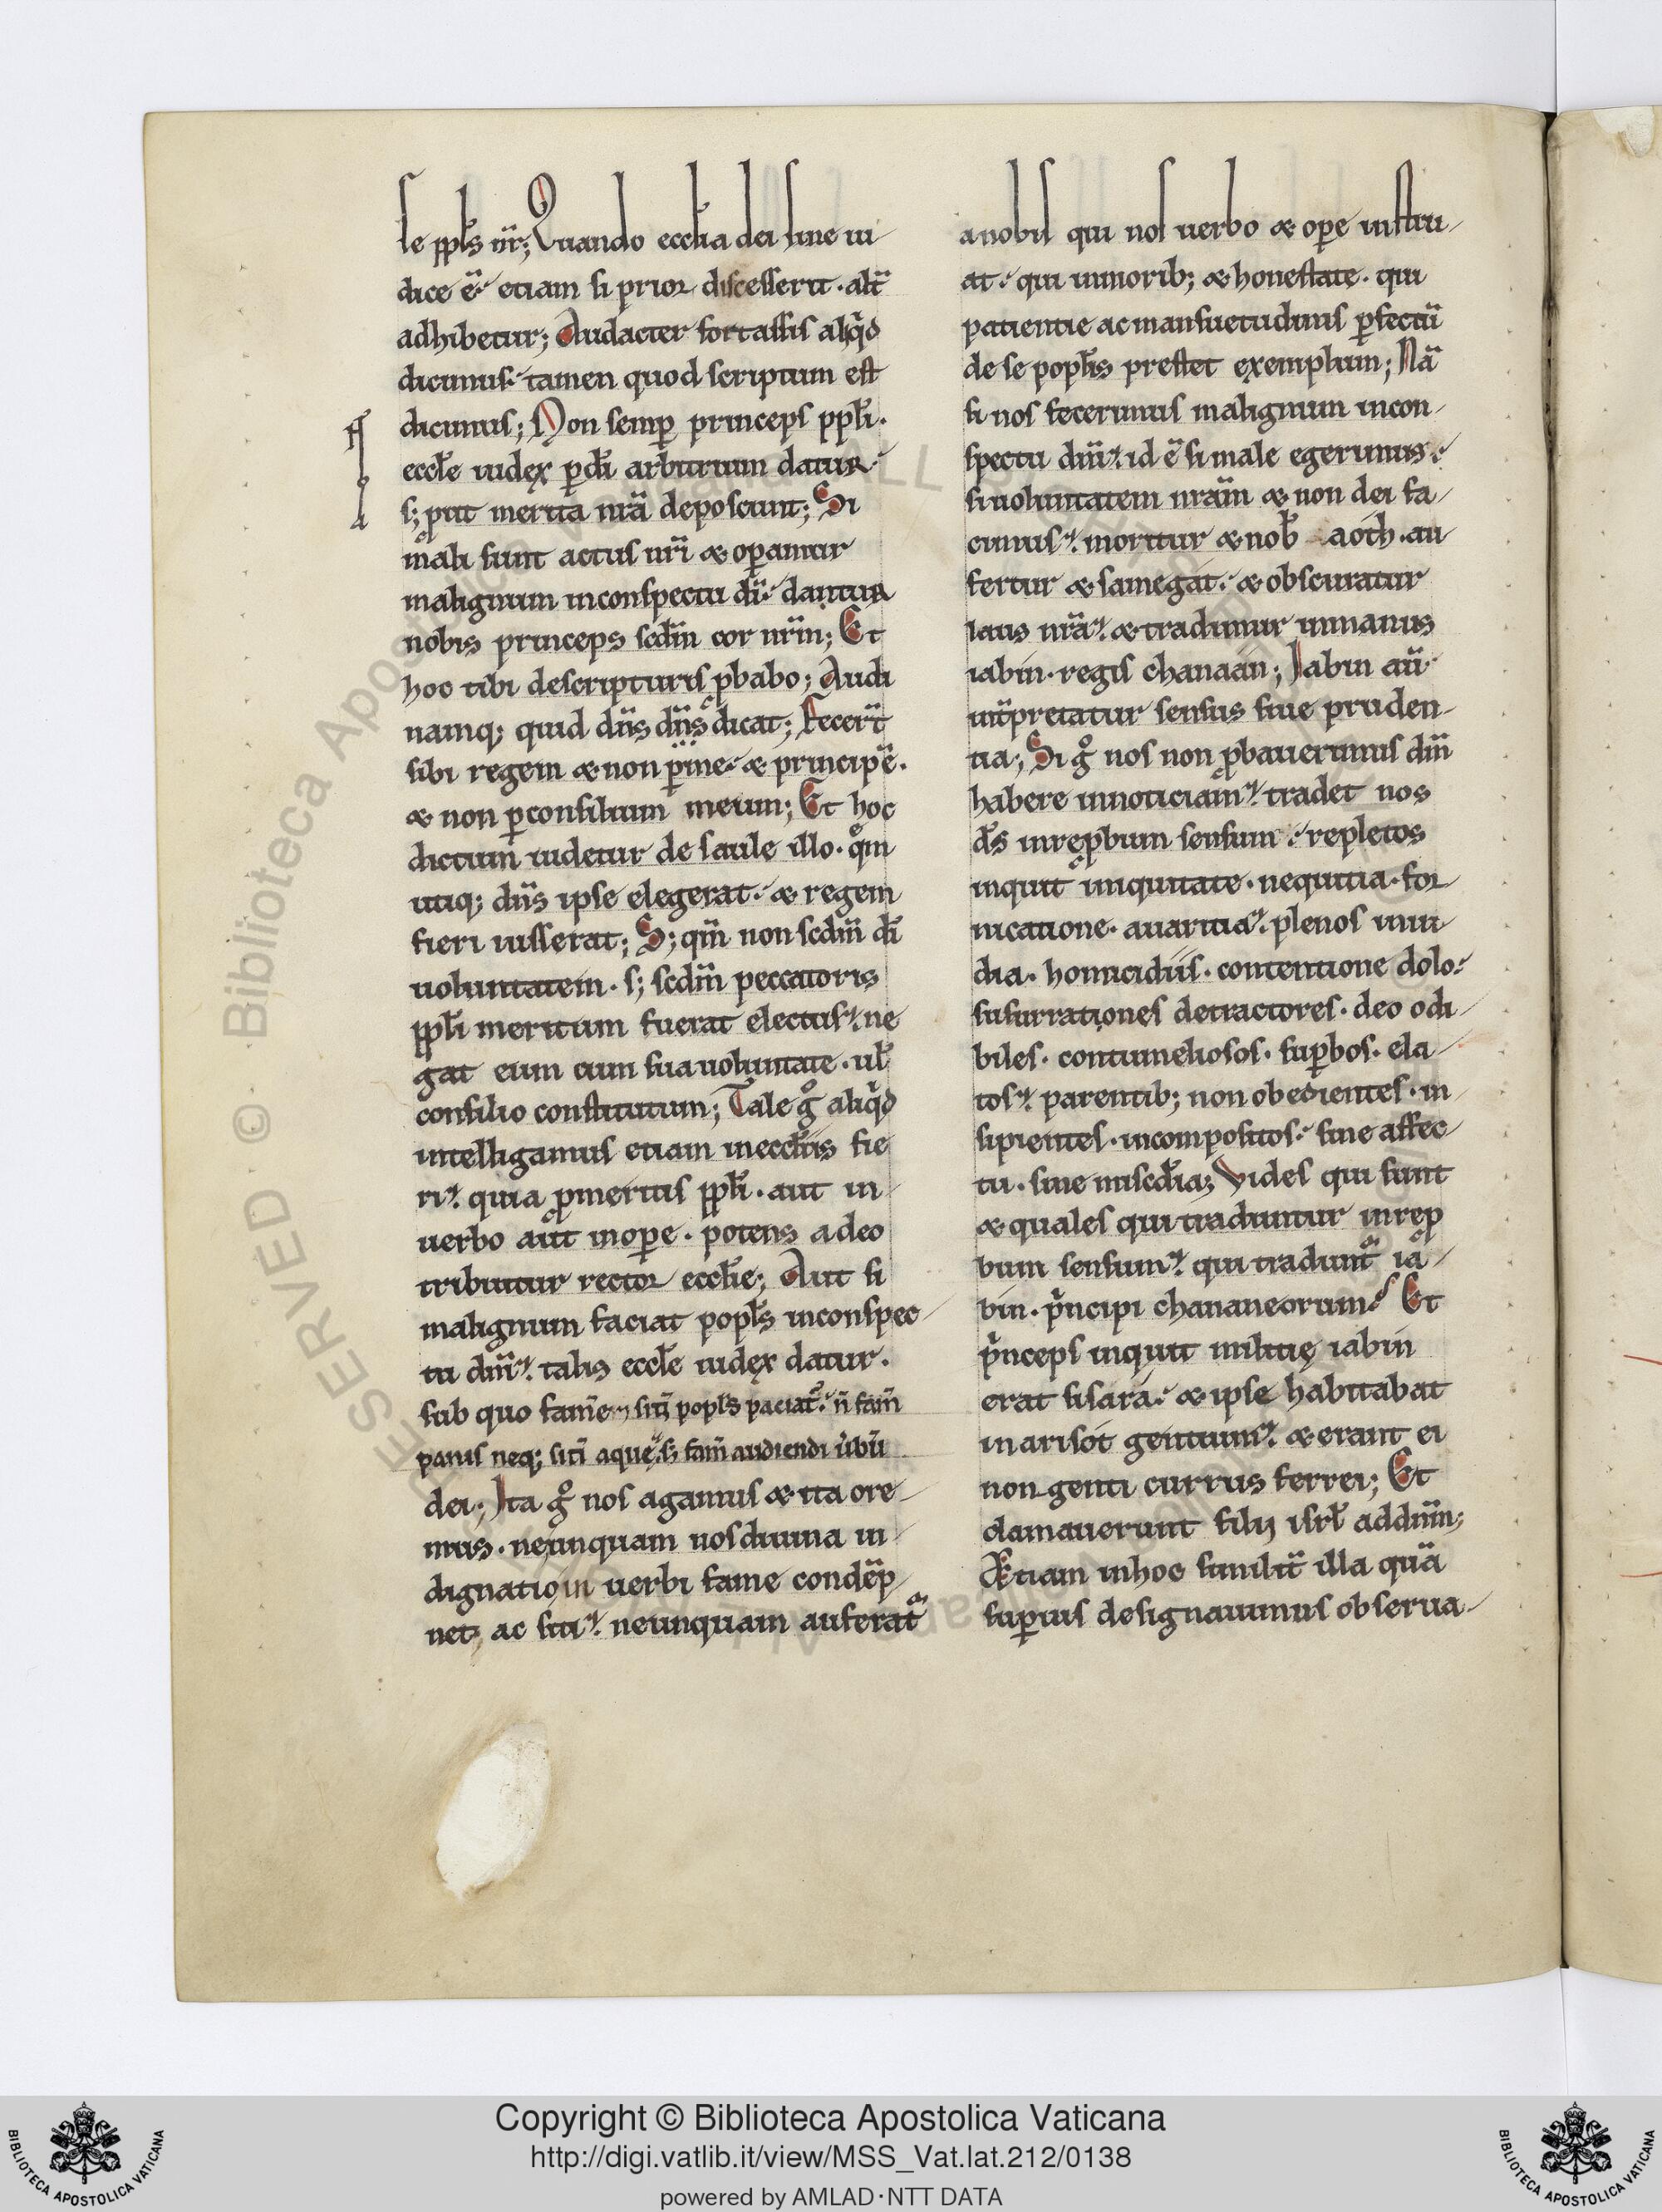 se ppl̄s nr̄; Quando eccl̄ia dei sine iu
dice ē. etiam si prior discesserit. alt̄
adhibetur; Audacter fortassis aliq̄d
dicimus. tamen quod scriptum est
dicimus; Non semꝑ princeps ppl̄i.
eccl̄e iudex ꝑ dī arbitrium datur.
s; ꝓut merita nr̄a deposcunt; Si
mali sunt actus nr̄i & oꝑamur
malignum inconspectu dī. dantur
nobis princeps scdm̄ cor nr̄m; Et
hoc tibi descripturis ꝓbabo; Audi
namq; quid dn̄s dn̄s dicat; Fecer̄t
sibi regem & non ꝑ me. & principē.
& non ꝑ consilium meum; Et hoc
dictum uidetur de saule illo. qm̄
utiq; dn̄s ipse elegerat. & regem
fieri iusserat; S; qm̄ non scdm̄ dī
uoluntatem. s; scdm̄ peccatoris
ppl̄i meritum fuerat electus. ne
gat eum cum sua uoluntate. ul̄
consilio constitutum; Tale g̊ aliq̄d
intelligamus etiam ineccl̄iis fie
ri. quia ꝓ meritis ppl̄i. aut in
uerbo aut inoꝑe. potens adeo
tribuitur rector eccl̄ie; Aut si
malignum faciat popl̄s inconspec
tu dn̄i. talis eccl̄e iudex datur.
sub quo famē & sitī popl̄s paciat̄. n̄ fam̄
panis neq; sitī aque, s; fam̄ audiendi u̇bū
dei; Ita g̊ nos agamus & ita ore
mus. neunquam nos diuina in
dignatio in uerbi fame condēp
net ac siti. neunquam auferat̄
a nobis qui nos uerbo & oꝑe instru
at. qui inmorib; & honestate. qui
patientie ac mansuetudinis ꝑfectū
de se popl̄is prestet exemplum; Nā
si nos fecerimus malignum incon
spectu dn̄i. id ē si male egerimus.
si uoluntatem nr̄am & non dei fa
cimus. moritur & nob̄ aoth. au
fertur & samegat. & obscuratur
laus nr̄a. & tradimur inmanus
iabin. regis chanaan; Iabin aū
int̄pretatur sensus siue pruden
tia; Si g̊ nos non ꝓbauerimus dm̄
habere innoticiam. tradet nos
ds̄ inreꝓbum sensum. repletos
inquit iniquitate. nequitia. for
nicatione. auaritia. plenos inui
dia. homicidiis. contentione dolo.
susurrationes detractores. deo odi
biles. contumeliosos. suꝑbos. ela
tos. parentib; non obedientes. in
sipientes. incompositos. sine affec
tu. sine miscd̄ia; Vides qui sunt
& quales qui traduntur inreꝓ
bum sensum. qui tradunt̄ ia
bin. pͥncipi chananeorum. Et
pͥnceps inquit militię iabin
erat sisara. & ipse habitabat
in arisot gentium. & erant ei
non genti currus ferrei; Et
clamauerunt filij isrl̄ addnm̄;
Etiam inhoc similit̄ illa quā
suꝑius designauimus obserua
Copyright © Biblioteca Apostolica Vaticana
http://digi.vatlib.it/view/MSS_Vat.lat.212/0138
powered by AMLAD·NTT DATA
BIBLIOTECA APOSTOLICA VATICANA
BIBLIOTECA APOSTOLICA VATICANA